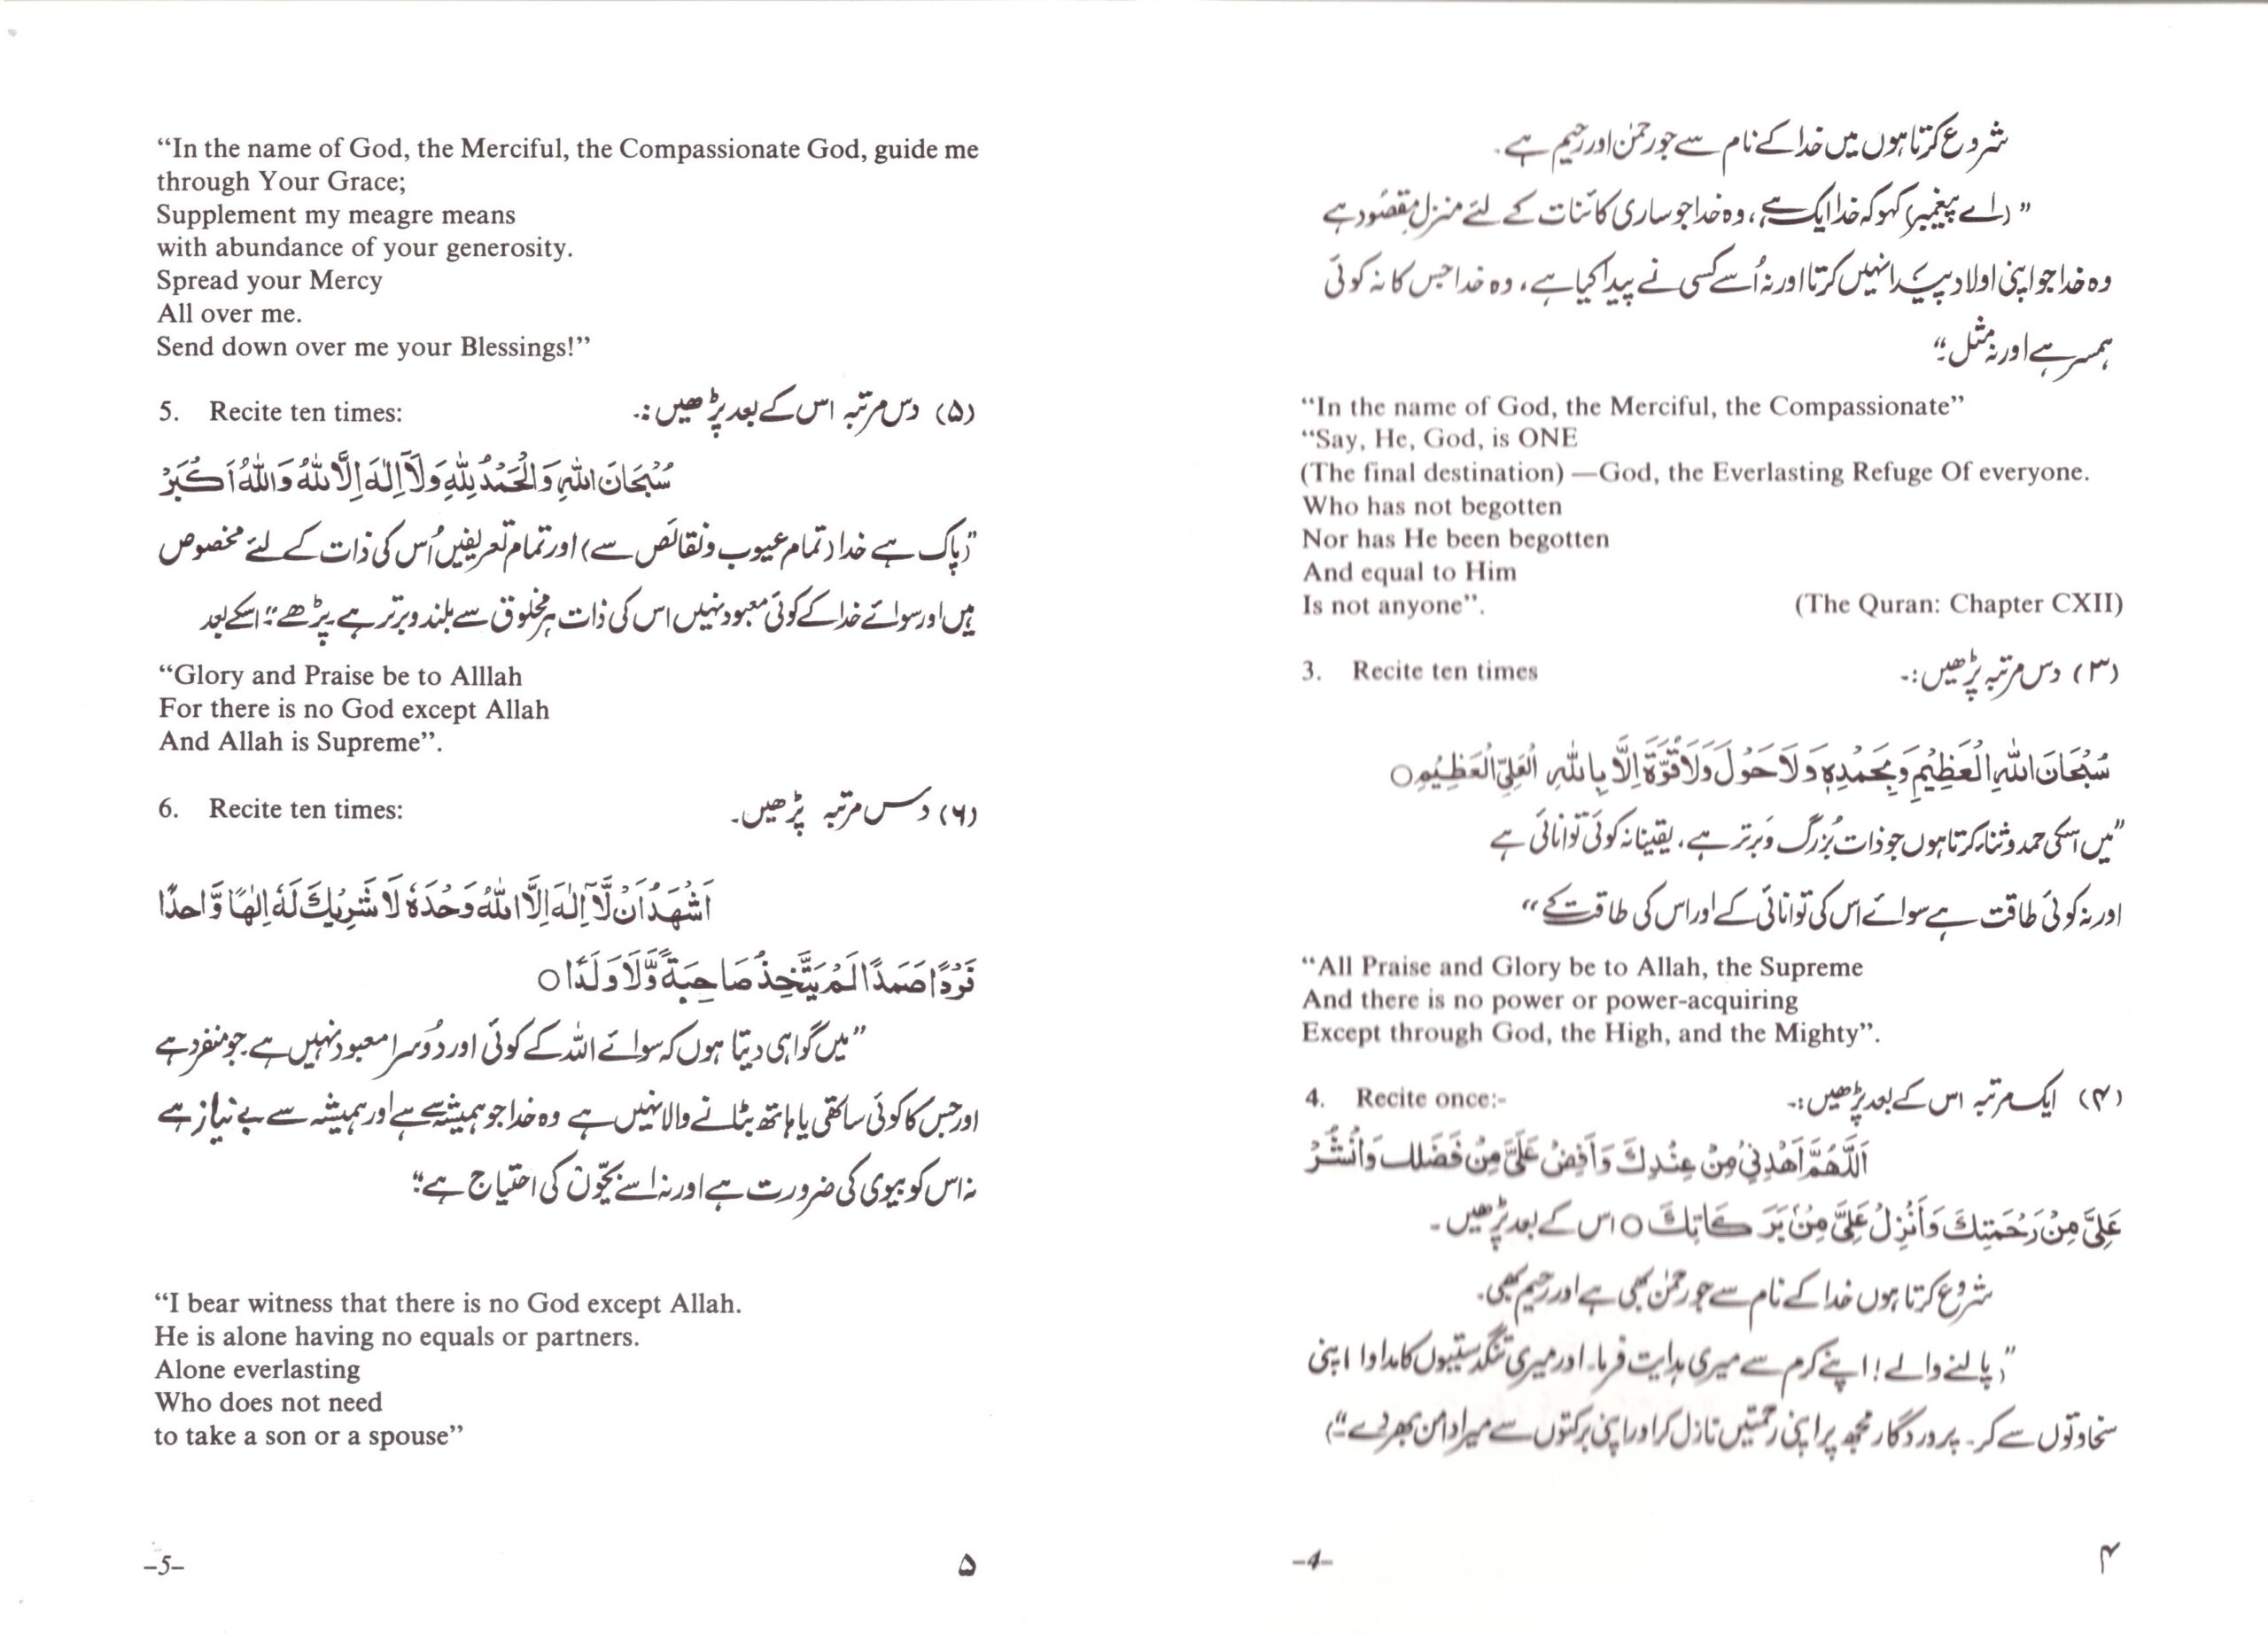 شروع کرتا ہوں میں خدا کے نام سے جو رحمٰن اور رحیم ہے۔
”(اے پیغمبر) کہو کہ خدا ایک ہے، وہ خدا جو ساری کائنات کے لئے منزلِ مقصُود ہے
وہ خدا جو اپنی اولاد پیدا نہیں کرتا اور نہ اُسے کسی نے پیدا کیا ہے، وہ خدا جس کا نہ کوئی
ہمسر ہے اور نہ مثل“۔
“In the name of God, the Merciful, the Compassionate”
“Say, He, God, is ONE
(The final destination) —God, the Everlasting Refuge Of everyone.
Who has not begotten
Nor has He been begotten
And equal to Him
Is not anyone”. (The Quran: Chapter CXII)
3. Recite ten times (۳) دس مرتبہ پڑھیں:۔
سُبْحَانَ اللهِ الْعَظِيْمِ وَبِحَمْدِهٖ وَلَا حَوْلَ وَلَا قُوَّةَ اِلَّا بِاللهِ الْعَلِيِّ الْعَظِيْمِ○
”میں اسکی حمد و ثناء کرتا ہوں جو ذات بُزرگ و برتر ہے، یقینا نہ کوئی توانائی ہے
اور نہ کوئی طاقت ہے سوائے اس کی توانائی کے اور اس کی طاقت کے“
“All Praise and Glory be to Allah, the Supreme
And there is no power or power-acquiring
Except through God, the High, and the Mighty”.
4. Recite once:- (۴) ایک مرتبہ اس کے بعد پڑھیں:۔
اَللّٰهُمَّ اَهْدِنِيْ مِنْ عِنْدِكَ وَاَفِضْ عَلَيَّ مِنْ فَضْلِكَ وَانْشُرْ
عَلَيَّ مِنْ رَحْمَتِكَ وَاَنْزِلْ عَلَيَّ مِنْ بَرَكَاتِكَ○ اس کے بعد پڑھیں۔
شروع کرتا ہوں خدا کے نام سے جو رحمٰن بھی ہے اور رحیم بھی۔
”(پالنے والے! اپنے کرم سے میری ہدایت فرما۔ اور میری تنگدستیوں کا مداوا اپنی
سخاوتوں سے کر۔ پروردگار مجھ پر اپنی رحمتیں نازل کر اور اپنی برکتوں سے میرا دامن بھر دے“۔)
–4– ۴
“In the name of God, the Merciful, the Compassionate God, guide me
through Your Grace;
Supplement my meagre means
with abundance of your generosity.
Spread your Mercy
All over me.
Send down over me your Blessings!”
5. Recite ten times: (۵) دس مرتبہ اس کے بعد پڑھیں:۔
سُبْحَانَ اللهِ وَالْحَمْدُ لِلّٰهِ وَلَآ اِلٰهَ اِلَّا اللهُ وَاللهُ اَكْبَرُ
”(پاک ہے خدا (تمام عیوب و نقائص سے) اور تمام تعریفیں اُس کی ذات کے لئے مخصوص
ہیں اور سوائے خدا کے کوئی معبود نہیں اس کی ذات ہر مخلوق سے بلند و برتر ہے“۔ اسکے بعد پڑھے
“Glory and Praise be to Alllah
For there is no God except Allah
And Allah is Supreme”.
6. Recite ten times: (۶) دس مرتبہ پڑھیں۔
اَشْهَدُ اَنْ لَّآ اِلٰهَ اِلَّا اللهُ وَحْدَهٗ لَا شَرِيْكَ لَهٗ اِلٰهًا وَّاحِدًا
فَرْدًا صَمَدًا لَمْ يَتَّخِذْ صَاحِبَةً وَّلَا وَلَدًا○
”میں گواہی دیتا ہوں کہ سوائے اللہ کے کوئی اور دُوسرا معبود نہیں ہے۔ جو منفرد ہے
اور جس کا کوئی ساتھی یا ہاتھ بٹانے والا نہیں ہے وہ خدا جو ہمیشہ سے ہے اور ہمیشہ سے بے نیاز ہے
نہ اس کو بیوی کی ضرورت ہے اور نہ اسے بچّوں کی احتیاج ہے“۔
“I bear witness that there is no God except Allah.
He is alone having no equals or partners.
Alone everlasting
Who does not need
to take a son or a spouse”
–5– ۵